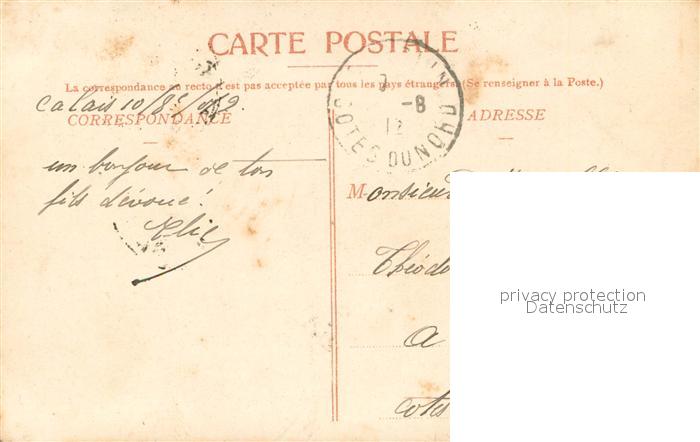 CARTE POSTALE
La correspondance au recto n'est pas acceptée par tous les pays étrangers. (Se renseigner à la Poste.)
Calais 10/8
CORRESPONDANCE
ADRESSE
-8
12
COTES DU NORD
un bonjour de ton
fils dévoué!
Monsieur
Théodo
a
cotes
privacy protection
Datenschutz